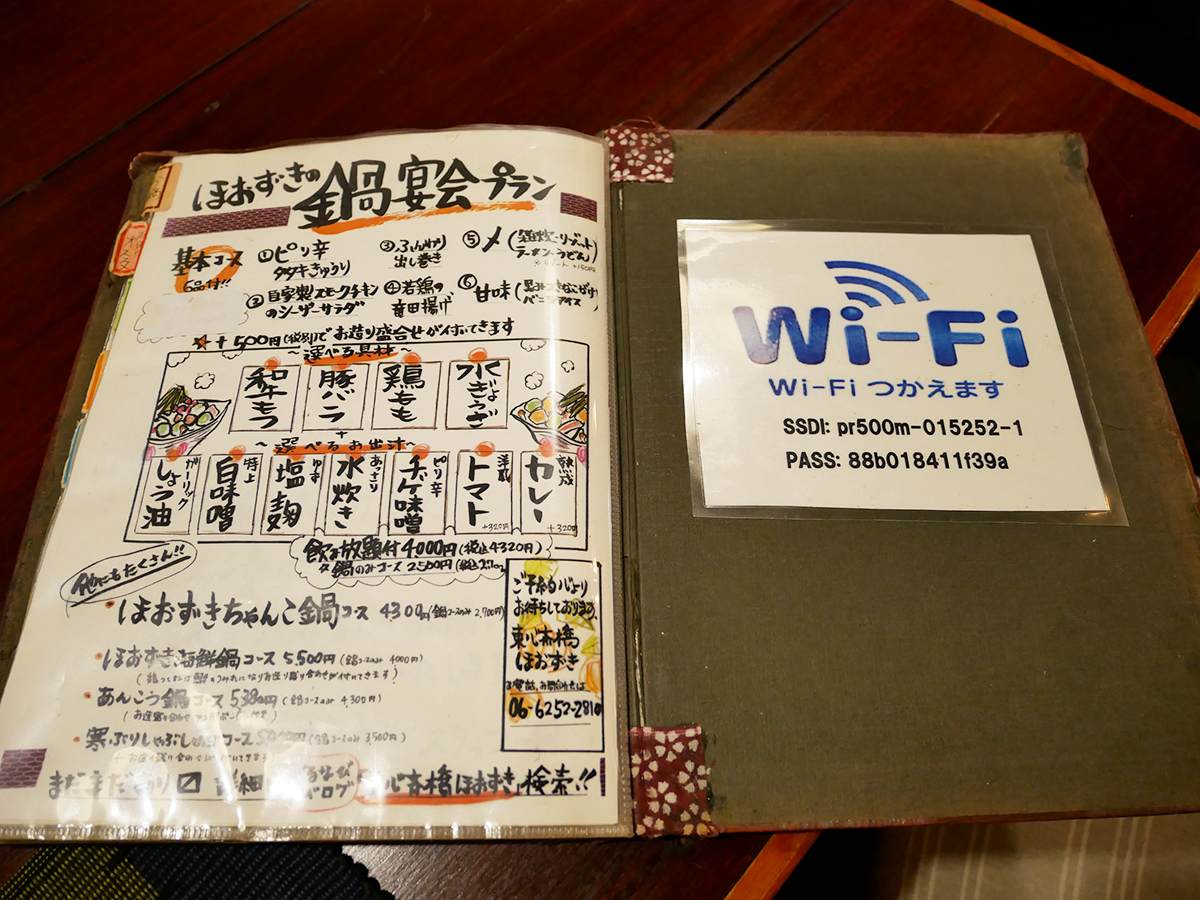 ほおずきの鍋宴会プラン
基本コース
6品付!!
①ピリ辛
タタキきゅうり
②自家製スモークチキン
のシーザーサラダ
③ふんわり
出し巻き
④若鶏の
竜田揚げ
⑤〆(雑炊・リゾート
ラーメン・うどん)
⑥甘味(
バニラアイス
☆+500円(税別)でお造り盛合せが付いてきます
~選べる具材~
和牛もつ
豚バラ
鶏もも
水ぎょうざ
+
~選べるお出汁~
ガーリック
しょう油
特上
白味噌
ゆず
塩麹
あっさり
水炊き
ピリ辛
チゲ味噌
洋風
トマト
+320円
熟成
カレー
+320円
飲み放題付4000円(税込4320円)
鍋のみコース2500円(税込
他にもたくさん!!
・ほおずきちゃんこ鍋コース 4300円(鍋コースのみ 2,700円)
・ほおずき海鮮鍋コース 5,500円(鍋コースのみ 4000円)
・あんこう鍋コース 5380円(鍋コースのみ 4,300円)
・寒ぶりしゃぶしゃぶコース (鍋コースのみ 3,500円)
ご予約心より
お待ちしております。
東心斎橋
ほおずき
お電話、お問合せは
06-6252-2810
まだまだあり 詳細 ぐるなび
ブログ
心斎橋ほおずき」検索!!
Wi-Fi
Wi-Fi つかえます
SSDI: pr500m-015252-1
PASS: 88b018411f39a